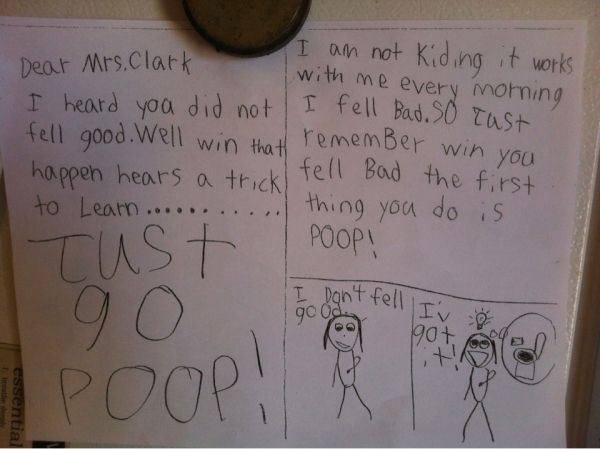 Dear Mrs.Clark
I heard you did not
fell good.Well win that
happen hears a trick
to Learn..............
Just
go
POOP!
I am not Kiding it works
with me every morning
I fell Bad.SO Just
remember win you
fell Bad the first
thing you do is
POOP!
I Don't fell
good.
I'v
got
it!
essential